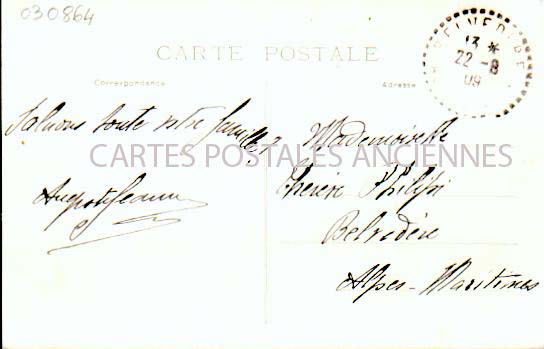 030864
CARTE POSTALE
Correspondance
Adresse
BELVEDERE
13 *
22 - 8
09
Saluons toute votre famille
Mademoiselle
CARTES POSTALES ANCIENNES
Thérèse Philipi
Belvédère
Alpes-Maritimes